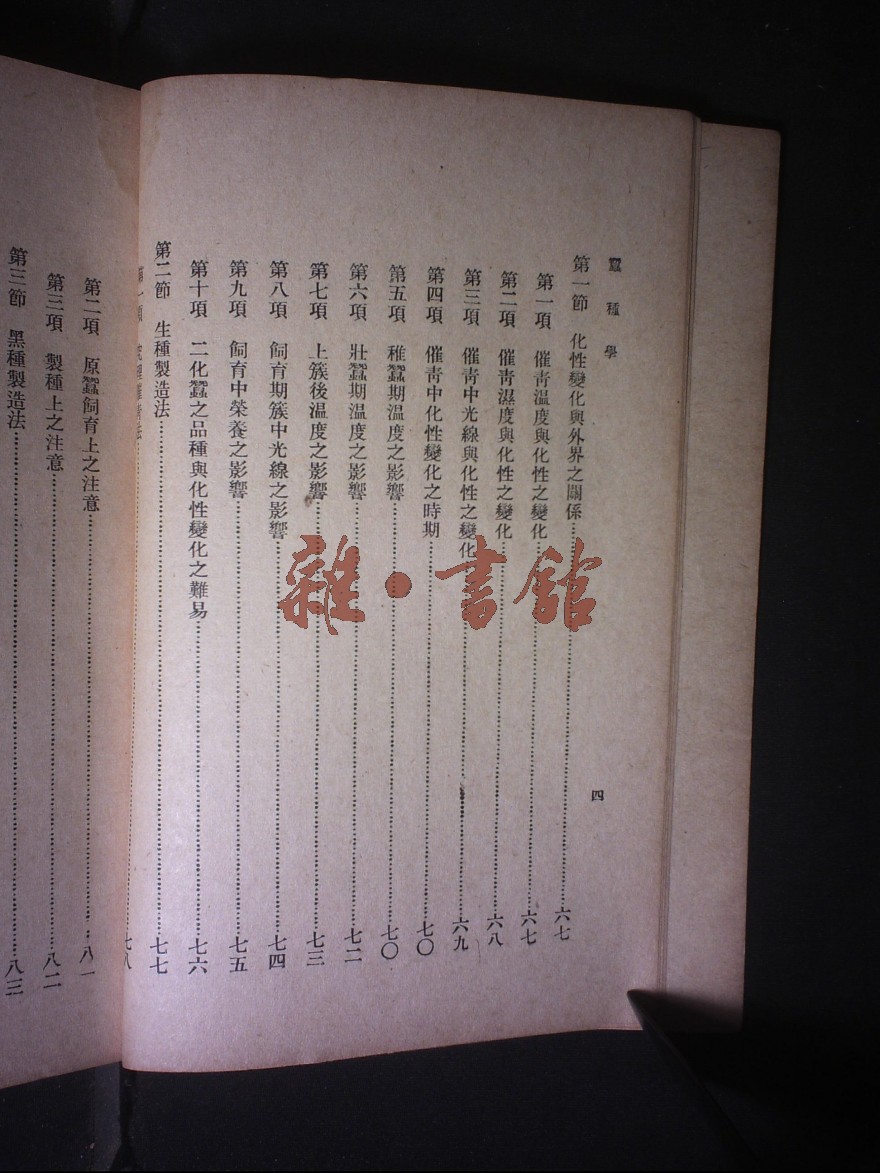 蠶種學
四
第一節 化性變化與外界之關係……六七
第一項 催青溫度與化性之變化……六七
第二項 催青濕度與化性之變化……六八
第三項 催青中光線與化性之變化……六九
第四項 催青中化性變化之時期……七〇
第五項 稚蠶期溫度之影響……七〇
第六項 壯蠶期溫度之影響……七二
第七項 上簇後溫度之影響……七三
第八項 飼育期簇中光線之影響……七四
第九項 飼育中榮養之影響……七五
第十項 二化蠶之品種與化性變化之難易……七六
第二節 生種製造法……七七
第一項 催青法……七八
第二項 原蠶飼育上之注意……八一
第三項 製種上之注意……八二
第三節 黑種製造法……八三
雜·書館